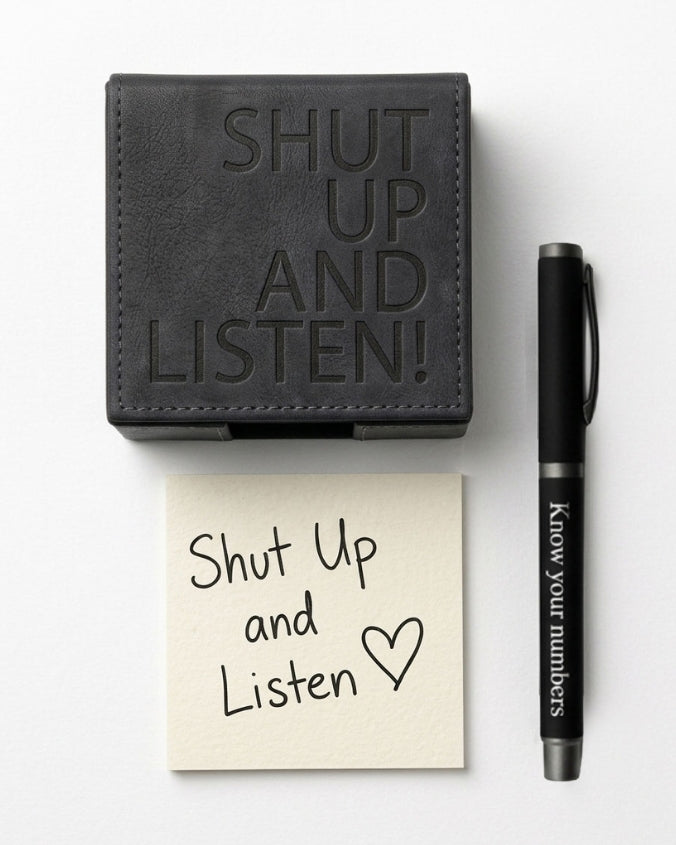 SHUT
UP
AND
LISTEN!
Shut Up
and
Listen
Know your numbers